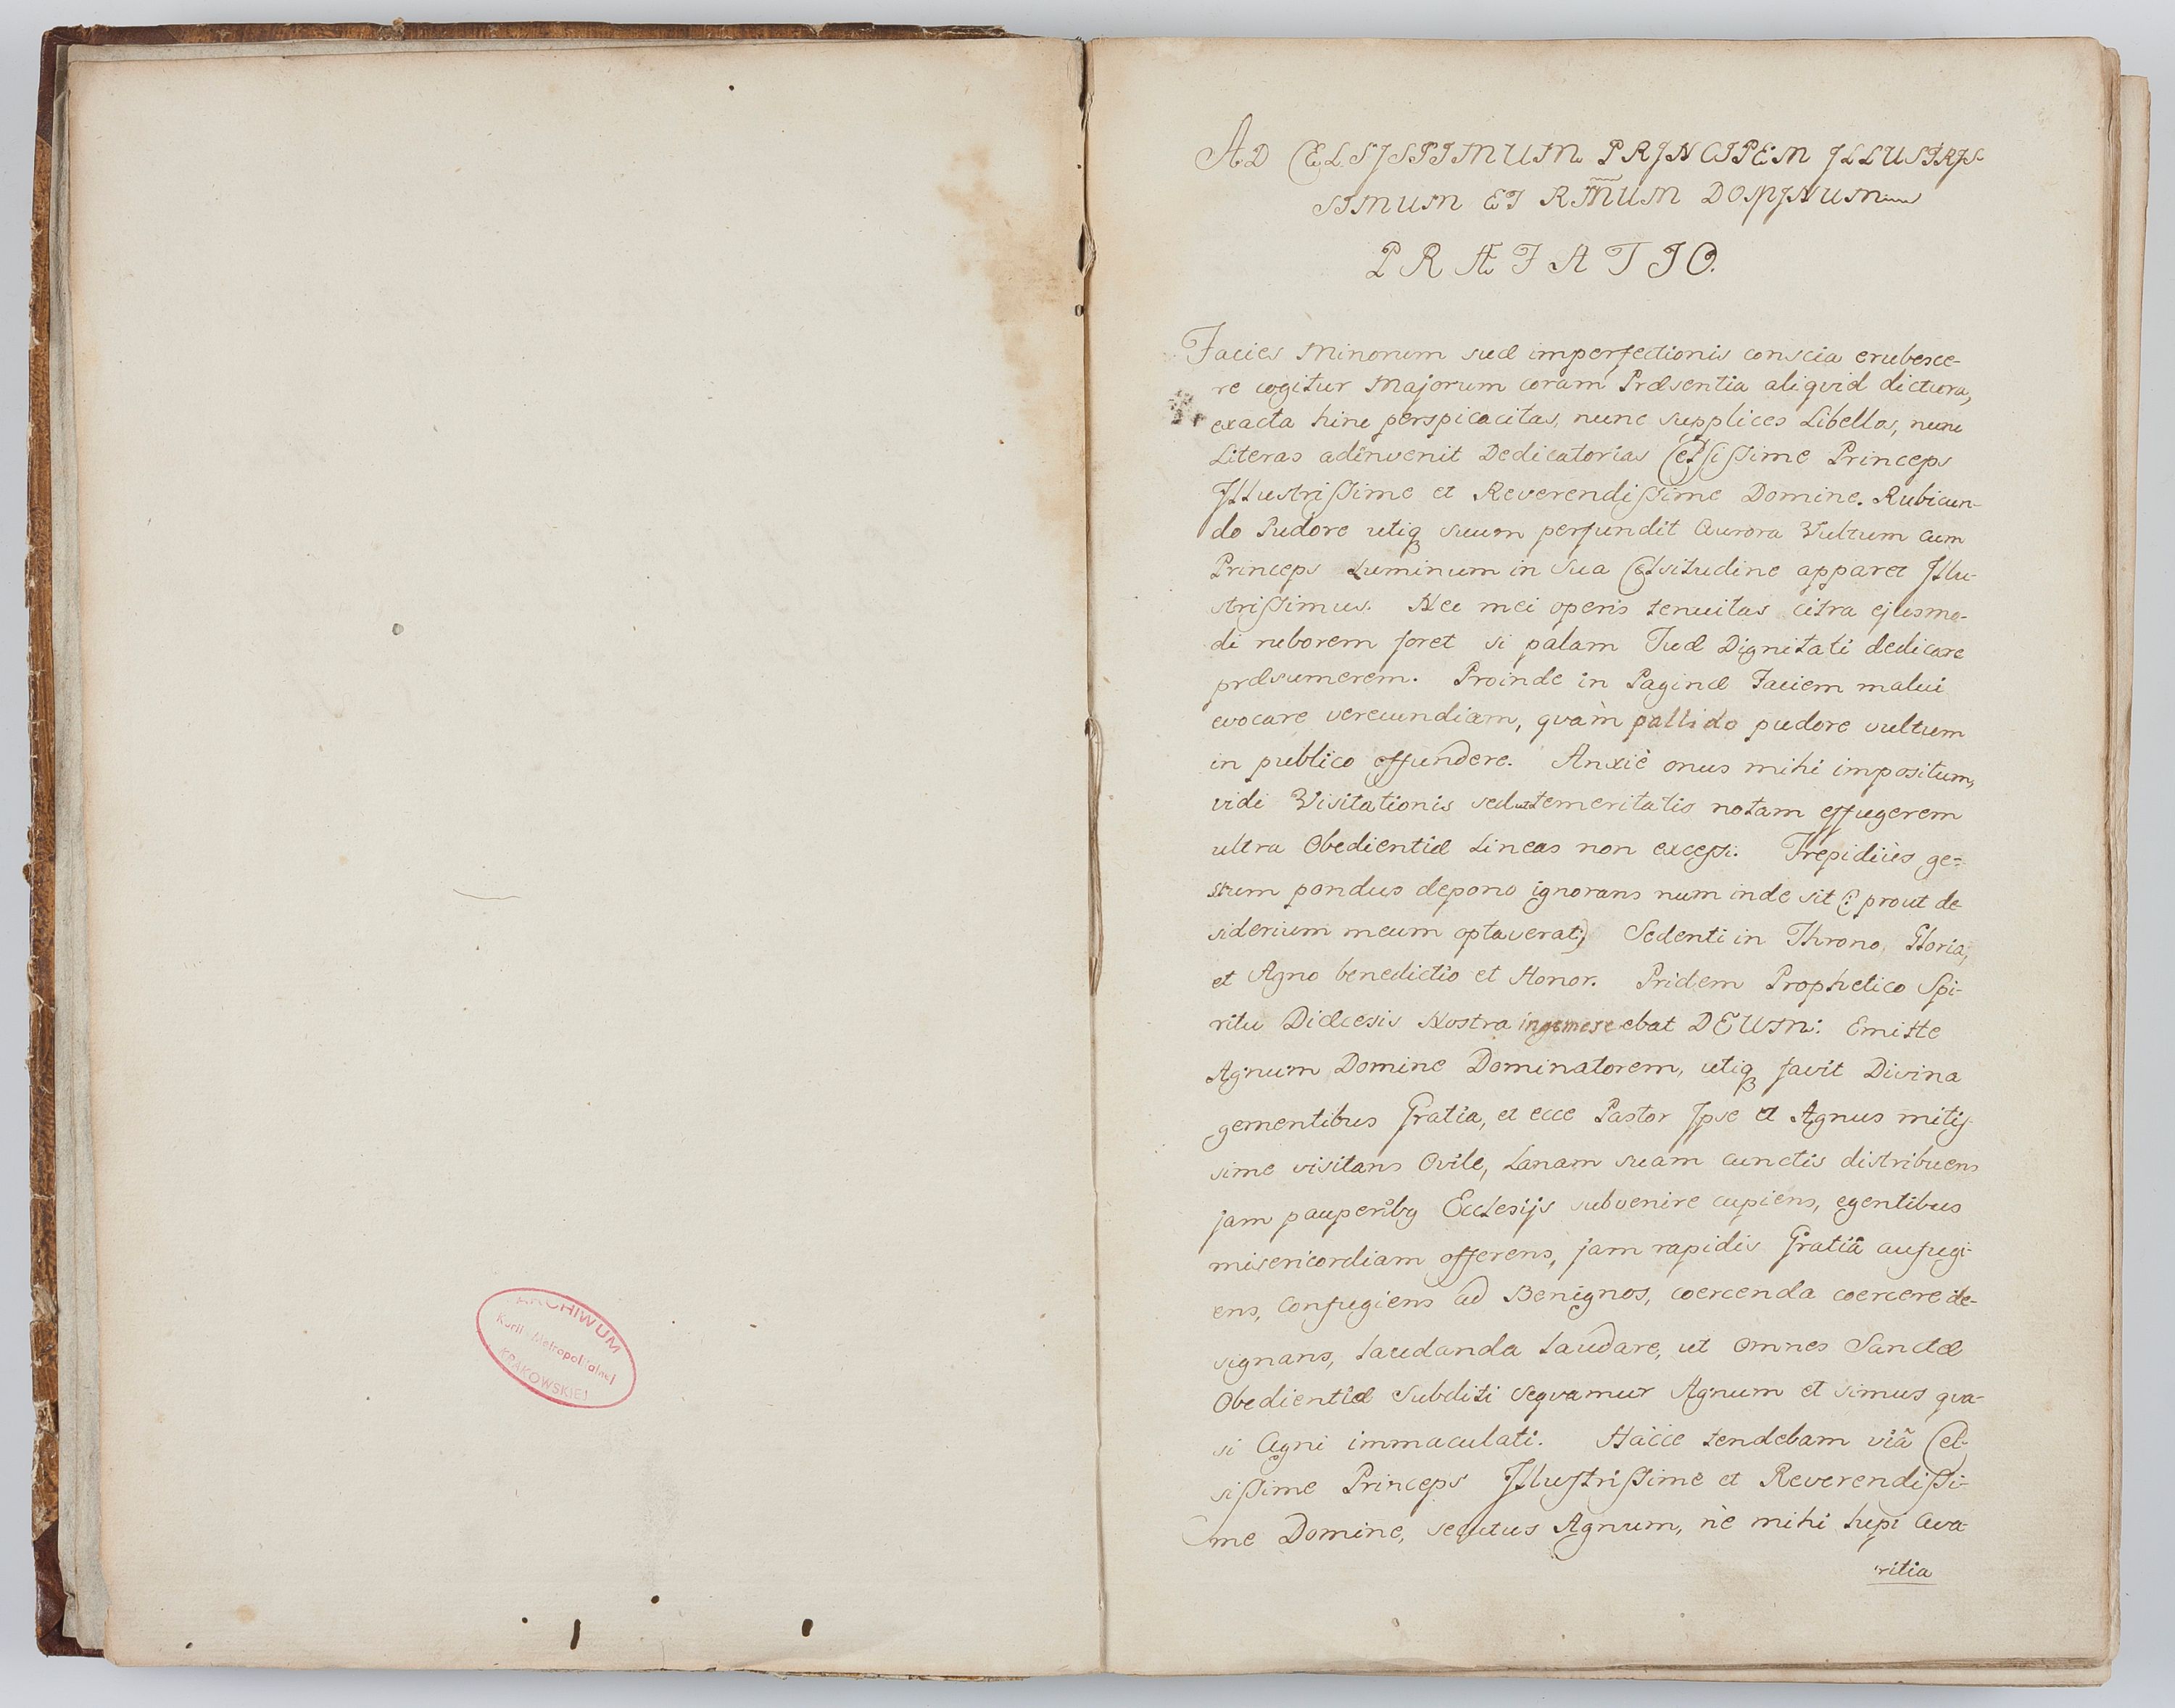 ARCHIWUM
Kurii Metropolitalnej
KRAKOWSKIEJ
AD CELSISSIMUM PRINCIPEM ILLUSTRIS-
SIMUM ET RM̃UM DOMINUM
PRÆFATIO.
Facies Minorum suæ imperfectionis conscia erubesce-
re cogitur Majorum coram Præsentia aliqvid dictura,
exacta hinc perspicacitas, nunc supplices Libellos, nunc
Literas adinvenit Dedicatorias Celsissime Princeps
Illustrissime et Reverendissime Domine. Rubicun-
do Pudore utiq suum perfundit Aurora Vultum cum
Princeps Luminum in sua Celsitudine apparet Illu-
strissimus. Nec mei operis tenuitas citra ejusmo-
di ruborem foret si palam Tuæ Dignitati dedicare
præsumerem. Proinde in Paginæ Faciem malui
evocare verecundiam, qvàm pallido pudore vultum
in publico offundere. Anxiè onus mihi impositum,
vidi Visitationis sed ut temeritatis notam effugerem
ultra Obedientiæ Lineas non excessi. Trepidiùs ge-
stum pondus depono ignorans num inde sit (: prout de
siderium meum optaverat:) Sedenti in Throno Gloria,
et Agno benedictio et Honor. Pridem Prophetico Spi-
ritu Diœcesis Nostra ingemescebat DEUM: Emitte
Agnum Domine Dominatorem, utiq favit Divina
gementibus Gratia, et ecce Pastor Ipse et Agnus mitis-
sime visitans Ovile, Lanam suam cunctis distribuens
jam pauperibg Ecclesijs subvenire cupiens, egentibus
misericordiam offerens, jam rapidis Gratiâ aufugi-
ens, confugiens ad Benignos, coercenda coercere de-
signans, Laudanda Laudare, ut omnes Sanctæ
Obedientiæ Subditi seqvamur Agnum et simus qva-
si Agni immaculati. Hacce tendebam viâ Cel-
sissime Princeps Illustrissime et Reverendissi-
me Domine, secutus Agnum, nè mihi Lupi Ava-
ritia